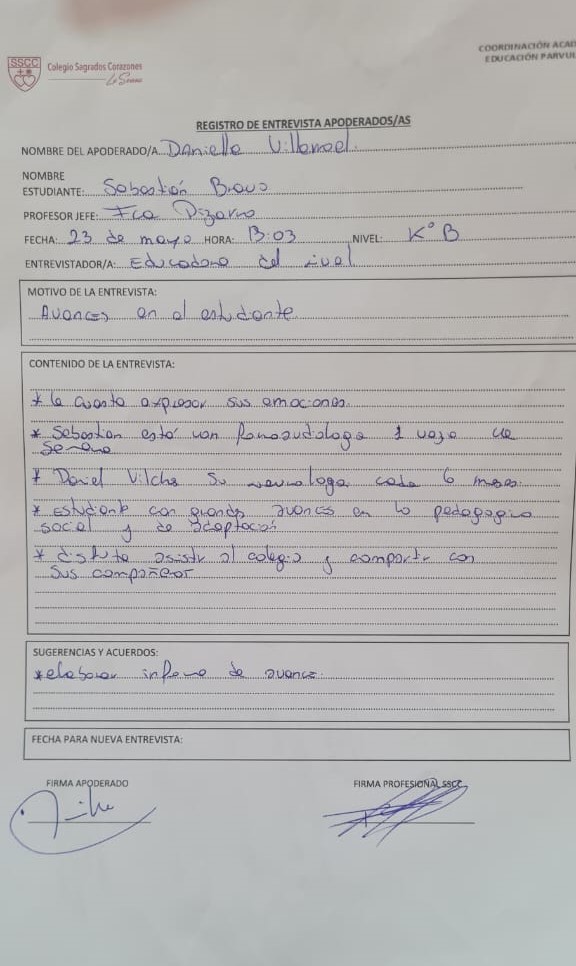 COORDINACIÓN ACAD
EDUCACIÓN PARVUL
SSCC
Colegio Sagrados Corazones
REGISTRO DE ENTREVISTA APODERADOS/AS
NOMBRE DEL APODERADO/A Daniella Villarroel
NOMBRE
ESTUDIANTE: Sebastián Bravo
PROFESOR JEFE: Fca Pizarro
FECHA: 23 de mayo HORA: 13:03 NIVEL: K° B
ENTREVISTADOR/A: Educadora del nivel
MOTIVO DE LA ENTREVISTA:
Avances en el estudiante
CONTENIDO DE LA ENTREVISTA:
* le cuesta expresar sus emociones.
* Sebastian está con fonoaudiologa 1 vez a la
semana
* Daniel Vilche su neurologa cada 6 meses.
* Estudiante con grandes avances en lo pedagogico
social y de adaptación
* disfruta asistir al colegio y compartir con
sus compañeros
SUGERENCIAS Y ACUERDOS:
* elaborar informe de avance.
FECHA PARA NUEVA ENTREVISTA:
FIRMA APODERADO FIRMA PROFESIONAL SSCC